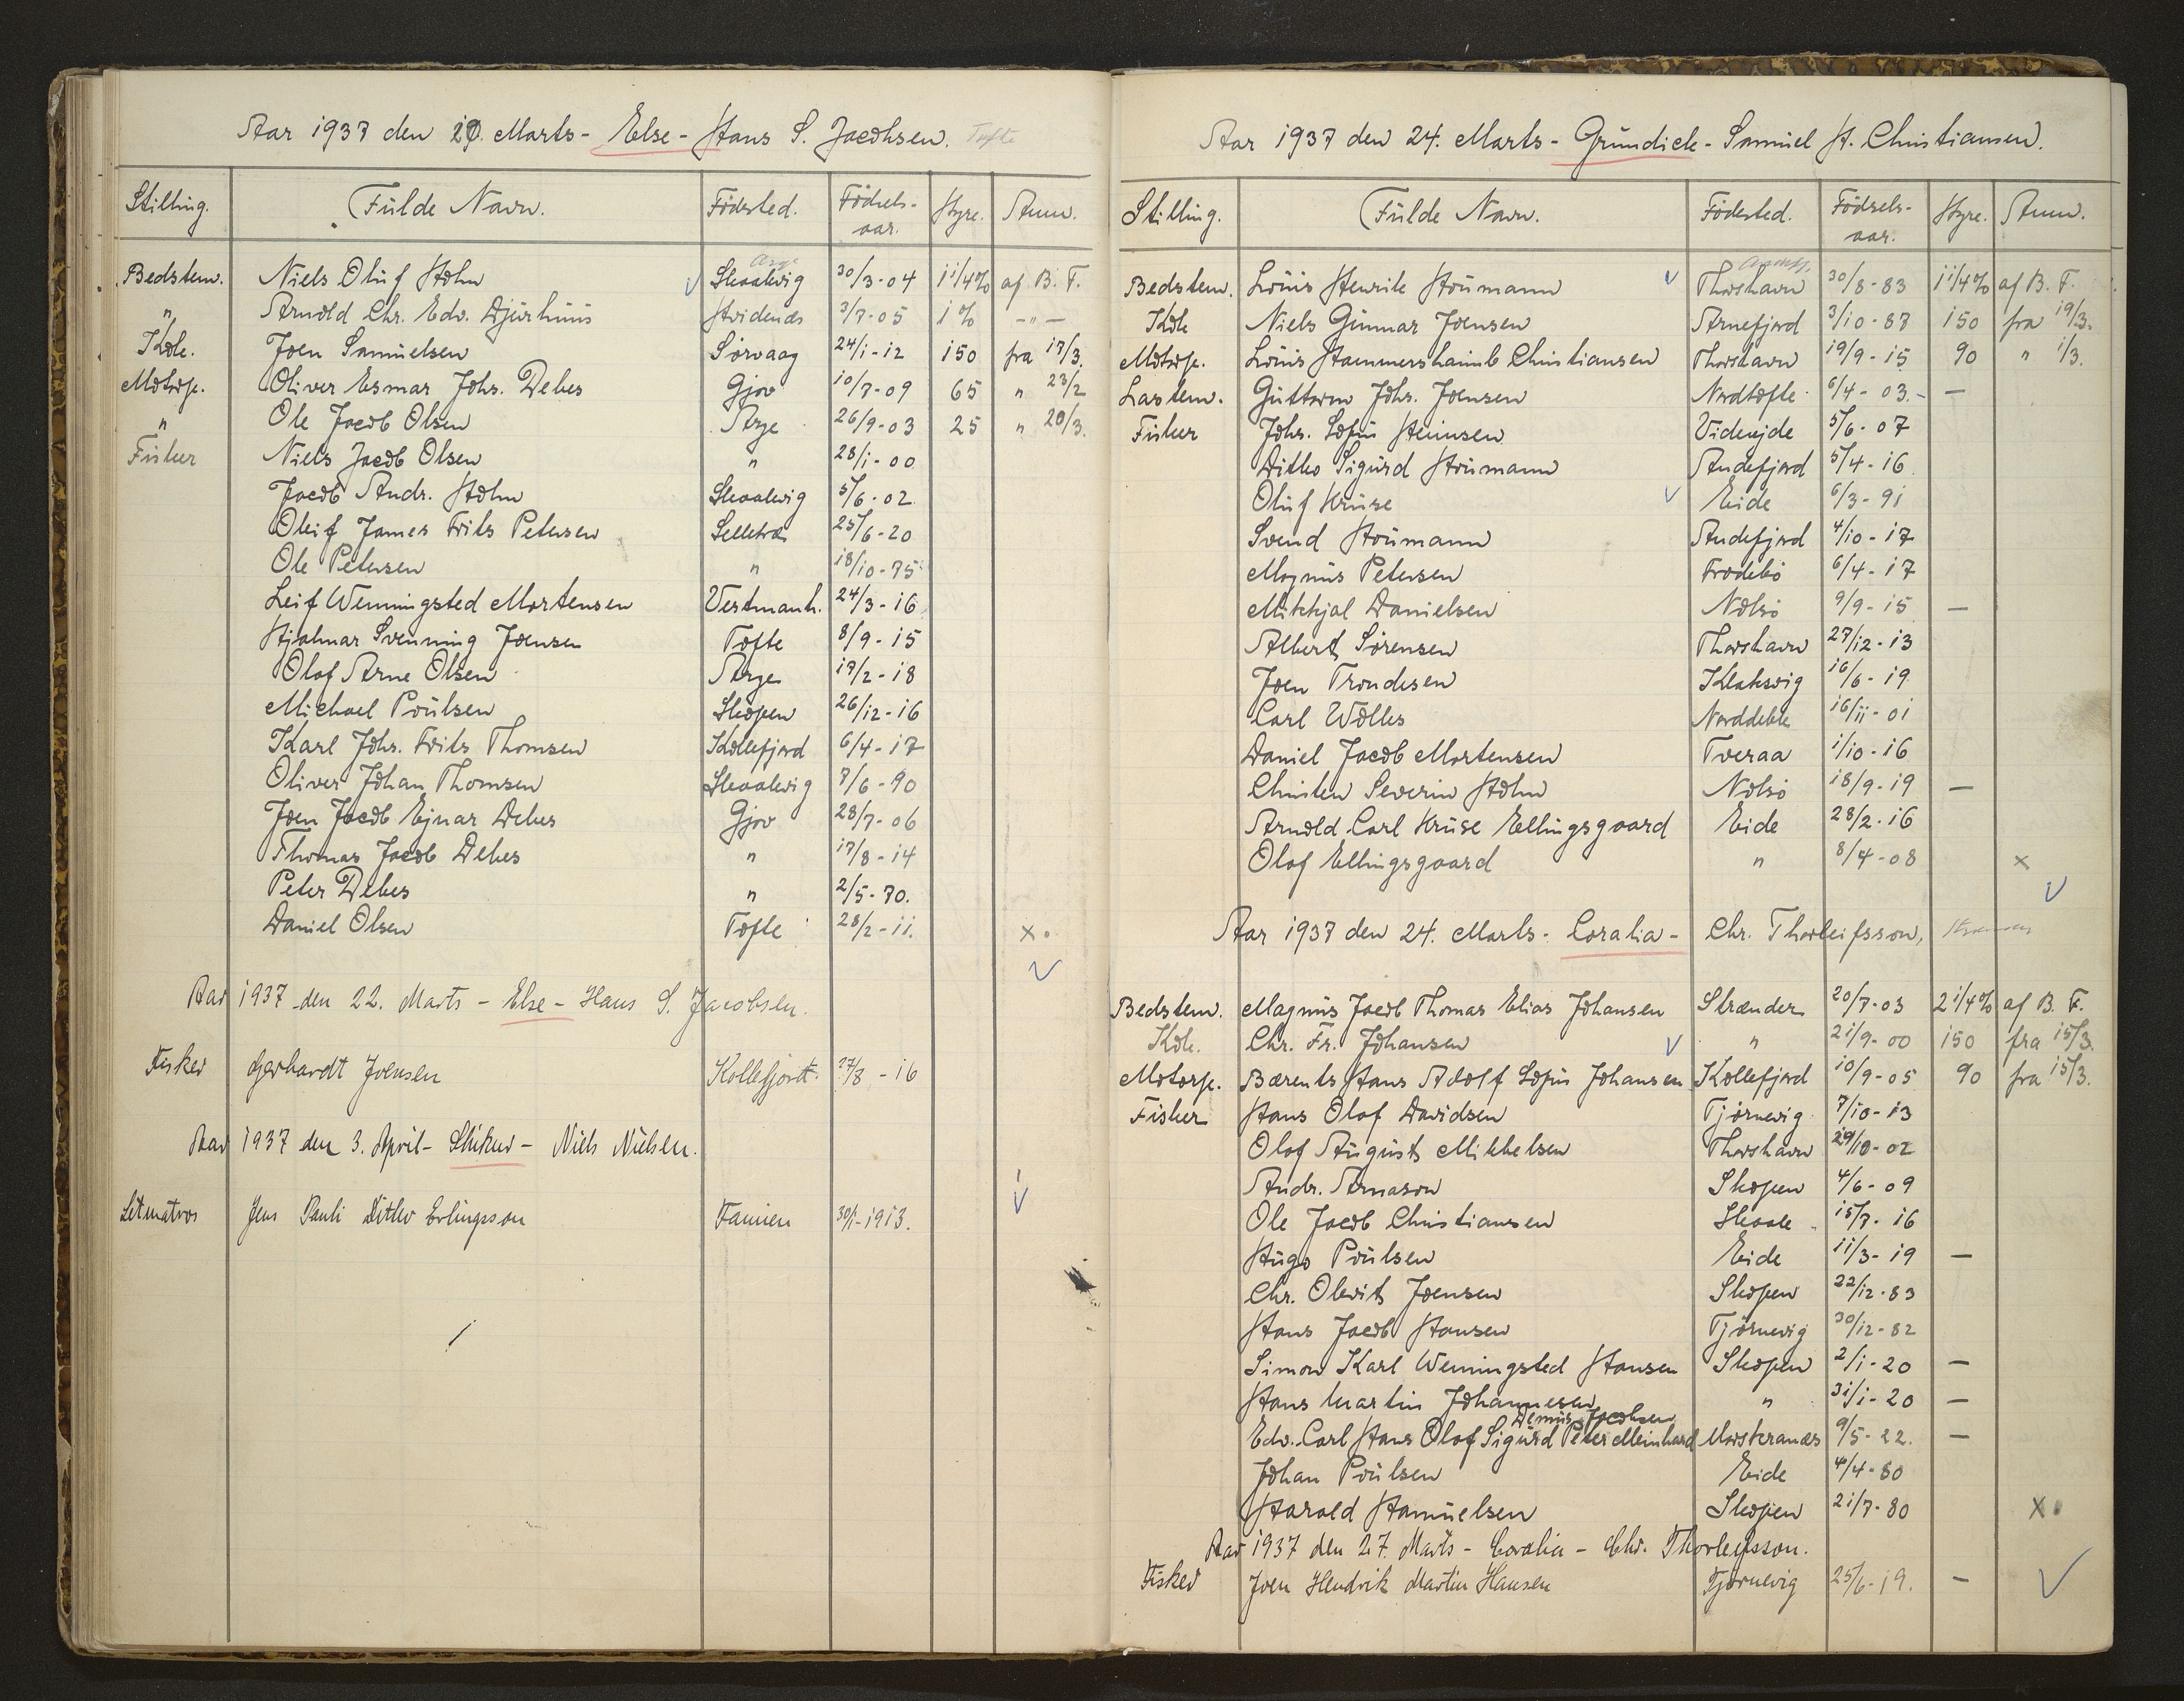 Aar 1937 den 20. Marts - Else - Hans S. Jacobsen. Tofte
Stilling. Fulde Navn. Födested. Födsels-aar. Hyre. Anm.
Arge
Bedstem. Niels Oluf Holm Skaalevig 30/3-04 1 1/4% af B. F.
" Arnold Chr. Edv. Djurhuus Hvidenæs 3/7-05 1% -"-
Kok. Joen Samuelsen Sörvaag 24/1-12 150 fra 17/3.
Motorp. Oliver Esmar Johs. Debes Gjov 10/7-09 65 " 23/2
" Ole Jacob Olsen Arge 26/9-03 25 " 20/3.
Fisker Niels Jacob Olsen " 28/1-00
Jacob Andr. Holm Skaalevig 5/6-02
Oleif James Frits Petersen Selletræ 25/6-20
Ole Petersen " 18/10-75
Leif Wenningsted Mortensen Vestmanh. 24/3-16
Hjalmar Svenning Joensen Tofte 8/9-15
Olaf Arne Olsen Arge 17/2-18
Michael Poulsen Skopen 26/12-16
Karl Johs. Frits Thomsen Kollefjord 6/4-17
Oliver Johan Thomsen Skaalevig 7/6-90
Joen Jacob Ejnar Debes Gjov 28/7-06
Thomas Jacob Debes " 17/8-14
Peter Debes " 2/5-70.
Daniel Olsen Tofte 28/2-11. x.
Aar 1937 den 22. Marts - Else - Hans S. Jacobsen.
Fisker Gerhardt Joensen Kollefjord 27/8-16
Aar 1937 den 3. April - - Niels Nielsen.
Letmatros Jens Pauli Ditlev Erlingsson Famien 30/1-1913.
Aar 1937 den 24. Marts - Grundick - Samuel H. Christiansen.
Stilling. Fulde Navn. Födested. Födsels-aar. Hyre. Anm.
Bedstem. Louis Henrik Houmann Thorshavn 30/8-83 1 1/4% af B. F.
Kok Niels Gunnar Joensen Arnefjord 3/10-87 150 fra 19/3.
Motorp. Louis Hammershaimb Christiansen Thorshavn 19/9-15 90 " 1/3.
Lastem. Guttorm Johs. Joensen Nordtofte 6/4-03. -
Fisker Johs. Sofus Heinesen Videnjde 5/6-07
Ditlev Sigurd Houmann Andefjord 5/4-16
Oluf Kruse Eide 6/3-91
Svend Houmann Andefjord 4/10-17
Magnus Petersen Frodebö 6/4-17
Mikkjal Danielsen Nolsö 9/9-15 -
Albert Sörensen Thorshavn 27/12-13
Joen Trondesen Klaksvig 16/6-19
Carl Wolles Norddeble 16/11-01
Daniel Jacob Mortensen Tveraa 1/10-16
Christen Severin Holm Nolsö 18/9-19 -
Arnold Carl Kruse Ellingsgaard Eide 28/2-16
Olaf Ellingsgaard " 8/4-08 x
Aar 1937 den 24. Marts - Coralia - Chr. Thorleifsson,
Bedstem. Magnus Jacob Thomas Elias Johansen Strænder 20/7-03 2 1/4% af B. F.
Kok. Chr. Fr. Johansen " 21/9-00 150 fra 15/3.
Motorp. Bærents Hans Adolf Sofus Johansen Kollefjord 10/9-05 90 fra 15/3.
Fisker Hans Olaf Davidsen Tjörnevig 7/10-13
Olaf August Mikkelsen Thorshavn 29/10-02
Andr. Arnason Skopen 4/6-09
Ole Jacob Christiansen Skaale 15/7-16
Hugo Poulsen Eide 11/3-19 -
Chr. Olevit Joensen Skopen 22/12-83
Hans Jacob Hansen Tjörnevig 30/12-82
Simon Karl Wenningsted Hansen Skopen 2/1-20 -
Hans Martin Johannesen " 31/1-20 -
Demus Jacobsen
Edv. Carl Hans Olaf Sigurd Peter Meinhard Morskranæs 9/5-22. -
Johan Poulsen Eide 4/4-80
Harald Samuelsen Skopen 21/7-80 x.
Aar 1937 den 27. Marts - Coralia - Chr. Thorleifsson.
Fisker Joen Hendrik Martin Hansen Tjørnevig 25/6-19. -